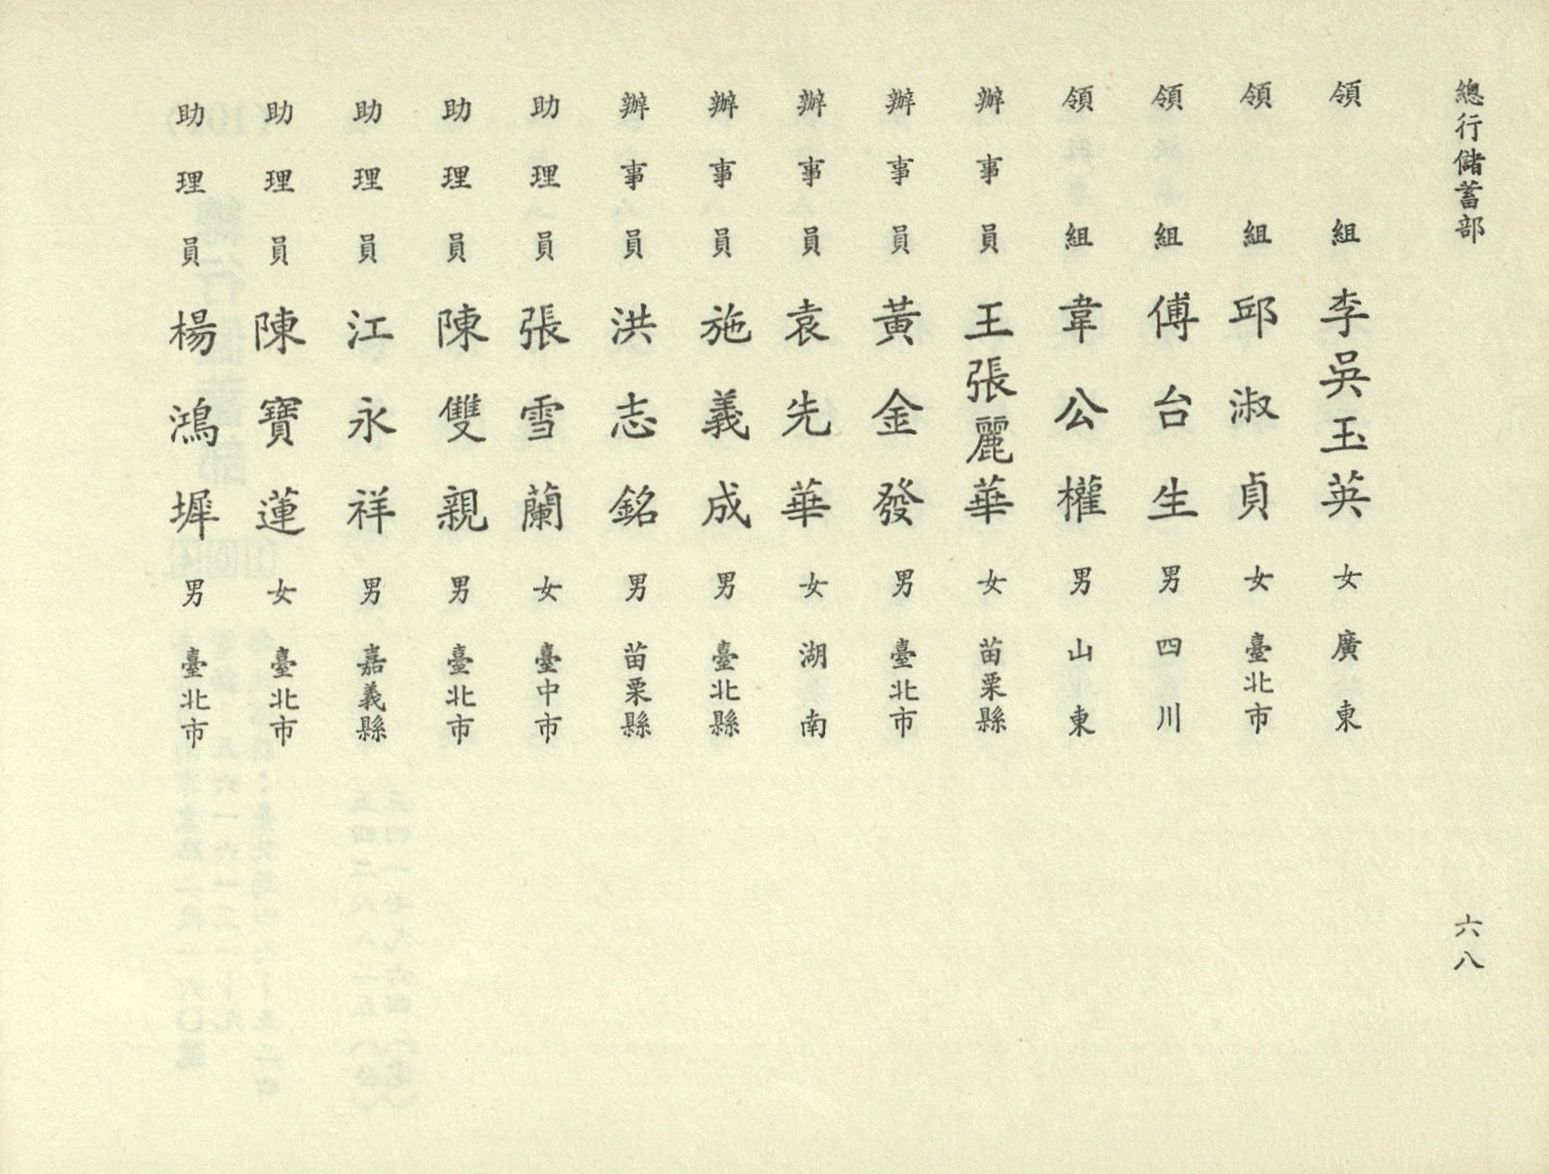 總行儲蓄部
六八
領組 李吳玉英 女 廣東
領組 邱淑貞 女 臺北市
領組 傅台生 男 四川
領組 韋公權 男 山東
辦事員 王張麗華 女 苗栗縣
辦事員 黃金發 男 臺北市
辦事員 袁先華 女 湖南
辦事員 施義成 男 臺北縣
辦事員 洪志銘 男 苗栗縣
助理員 張雪蘭 女 臺中市
助理員 陳雙親 男 臺北市
助理員 江永祥 男 嘉義縣
助理員 陳寶蓮 女 臺北市
助理員 楊鴻墀 男 臺北市